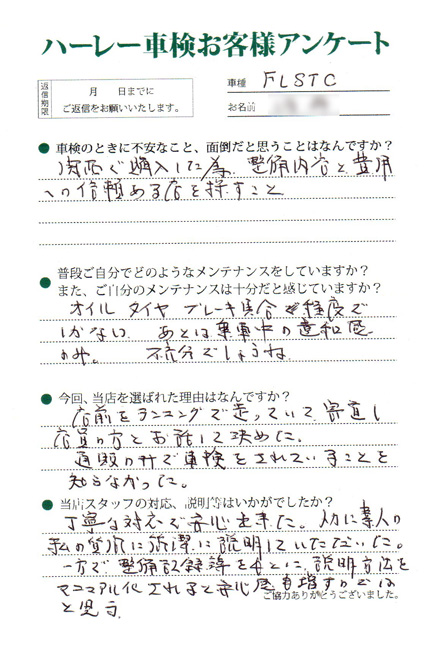 ハーレー車検お客様アンケート
返信期限
月　日までに
ご返信をお願いいたします。
車種 FLSTC
お名前
●車検のときに不安なこと、面倒だと思うことはなんですか?
購入した為、整備内容と費用
への信頼ある店を探すこと
●普段ご自分でどのようなメンテナンスをしていますか?
また、ご自分のメンテナンスは十分だと感じていますか?
オイル タイヤ ブレーキ具合 程度で
しかない。あとは乗車中の違和感
のみ。 不充分でしょうね
●今回、当店を選ばれた理由はなんですか?
店前をランニングで走っていて、寄道し
店員の方とお話して決めた。
通販のみで車検をされていることを
知らなかった。
●当店スタッフの対応、説明等はいかがでしたか?
丁寧な対応で安心出来た。 素人の
私の質問に 説明していただいた。
一方で整備記録簿をもとに、説明方法を
マニュアル化されると安心度も増すのでは
と思う。
ご協力ありがとうございました。